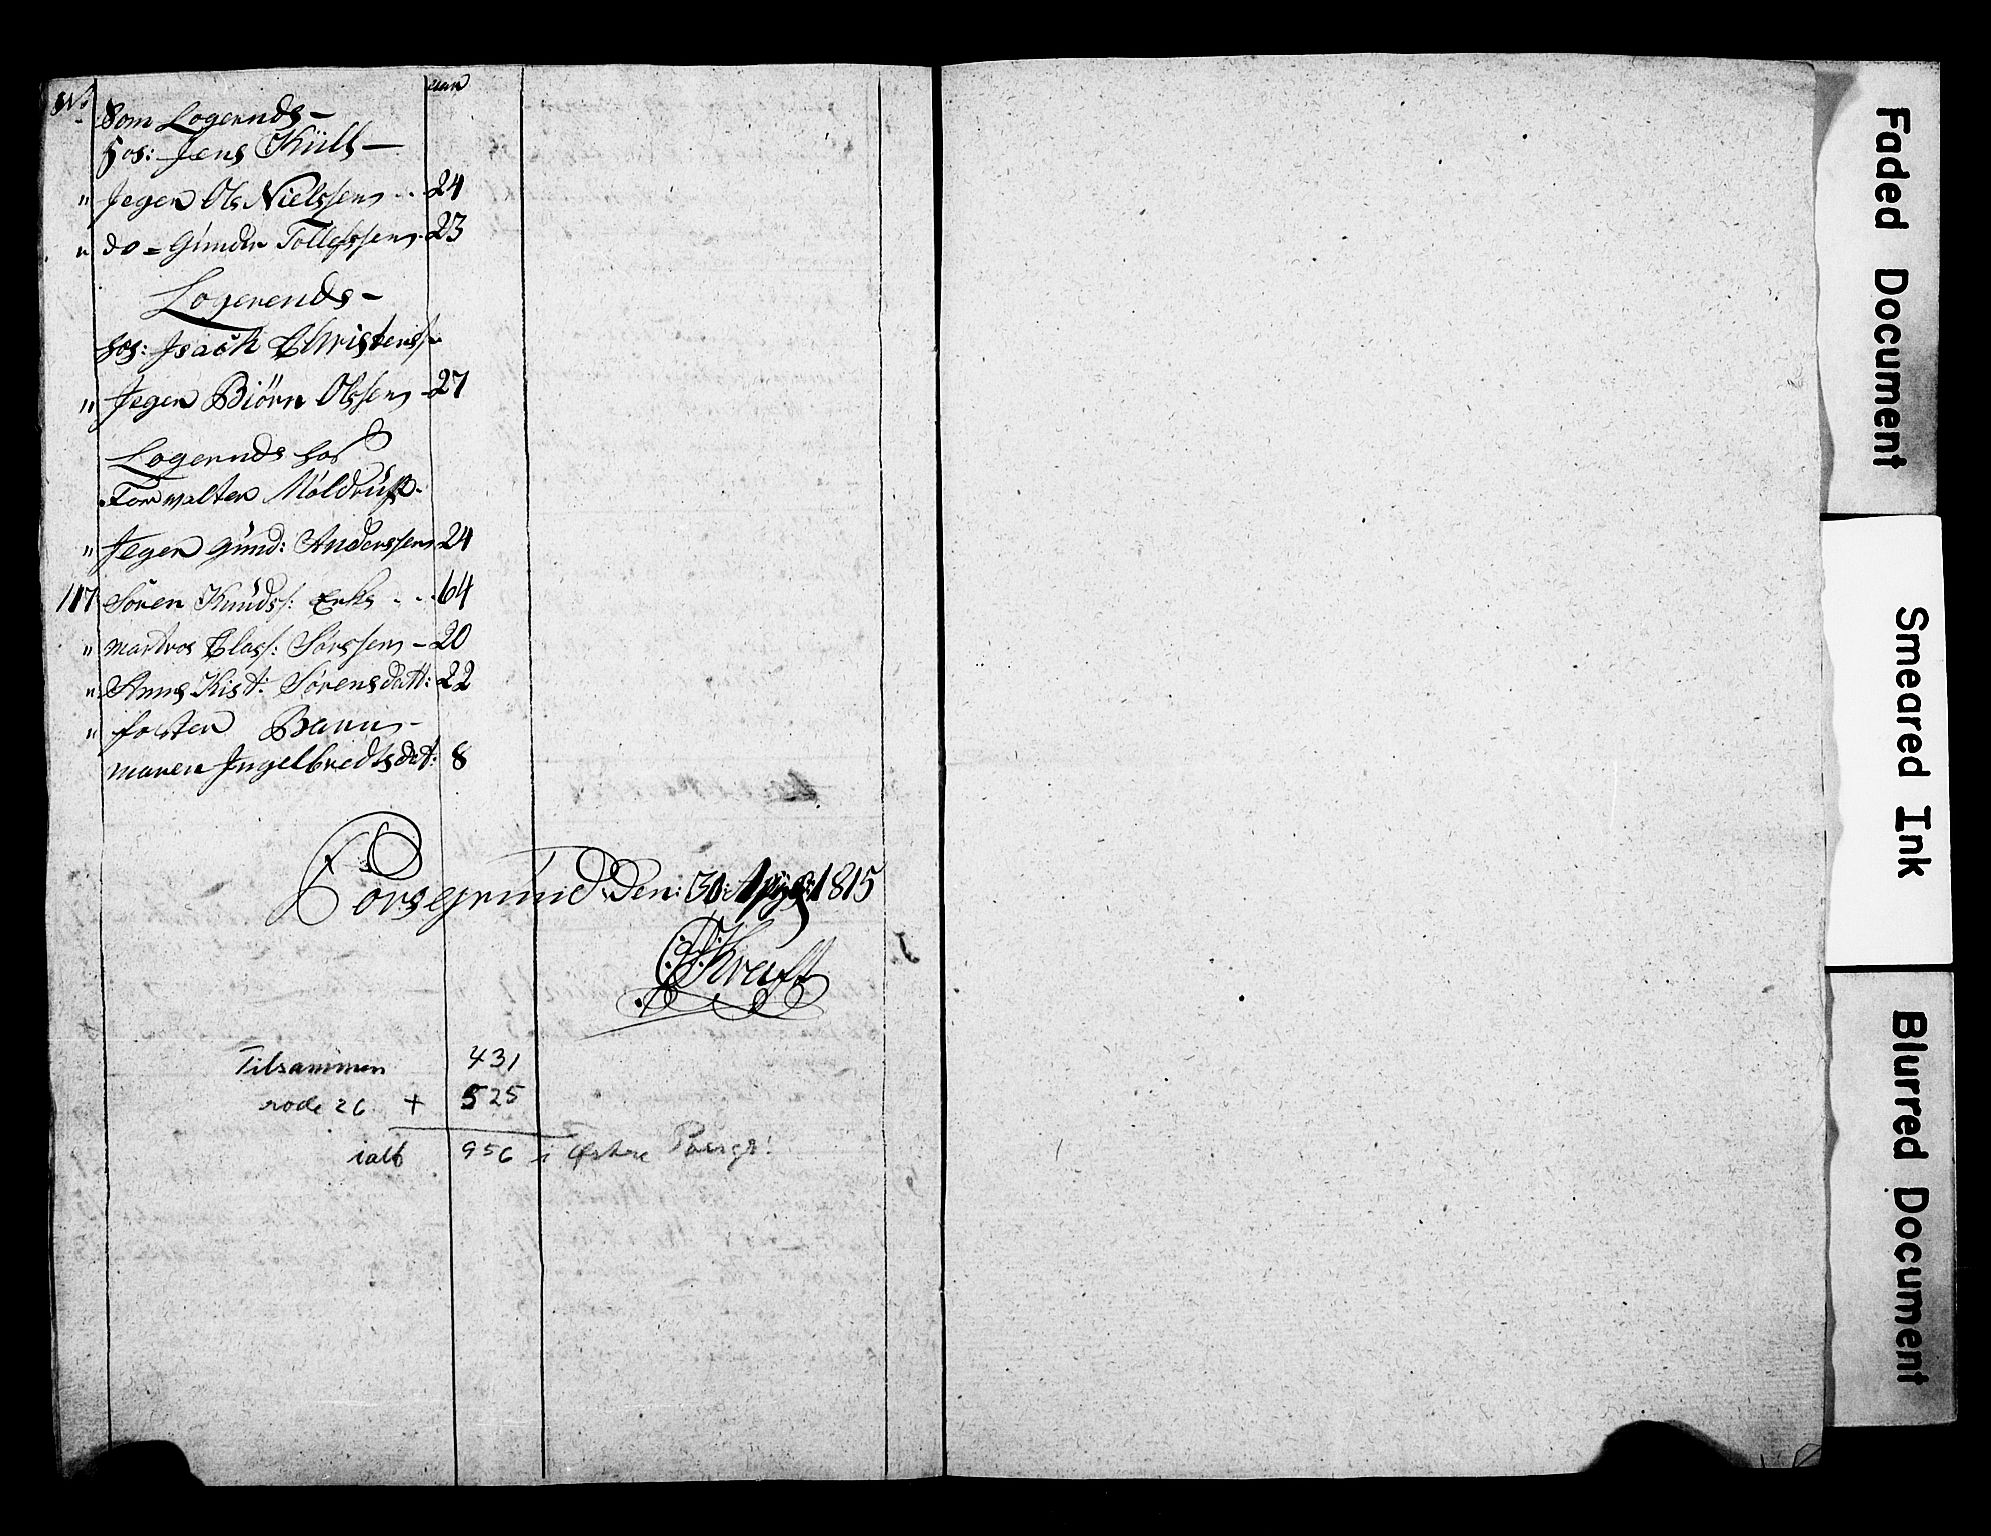 No
aar
Som Logernds -
hos: Jens Küll -
" Jeger Ols Nielssen - 24
" do = Günder Tollefssen - 23
Logerends -
hos: Isach Christenss:
" Jeger Biörn Olssen - 27
Logernds hos
Forwalter Möldrüp
" Jeger günd: Anderssen 24
117 Sören Knüds: Enke - 64
" martros Clas: Sörssen - 20
" Anne Kist: Sörensdatt: 22
" foster Barn -
maren Ingelbredtsdat: 8
Porsgrund den: 30: 1815
Kraft
Tilsammen 431
rode 26 + 525
ialt 956 i Østre Porsgr!
Faded Document
Smeared Ink
Blurred Document